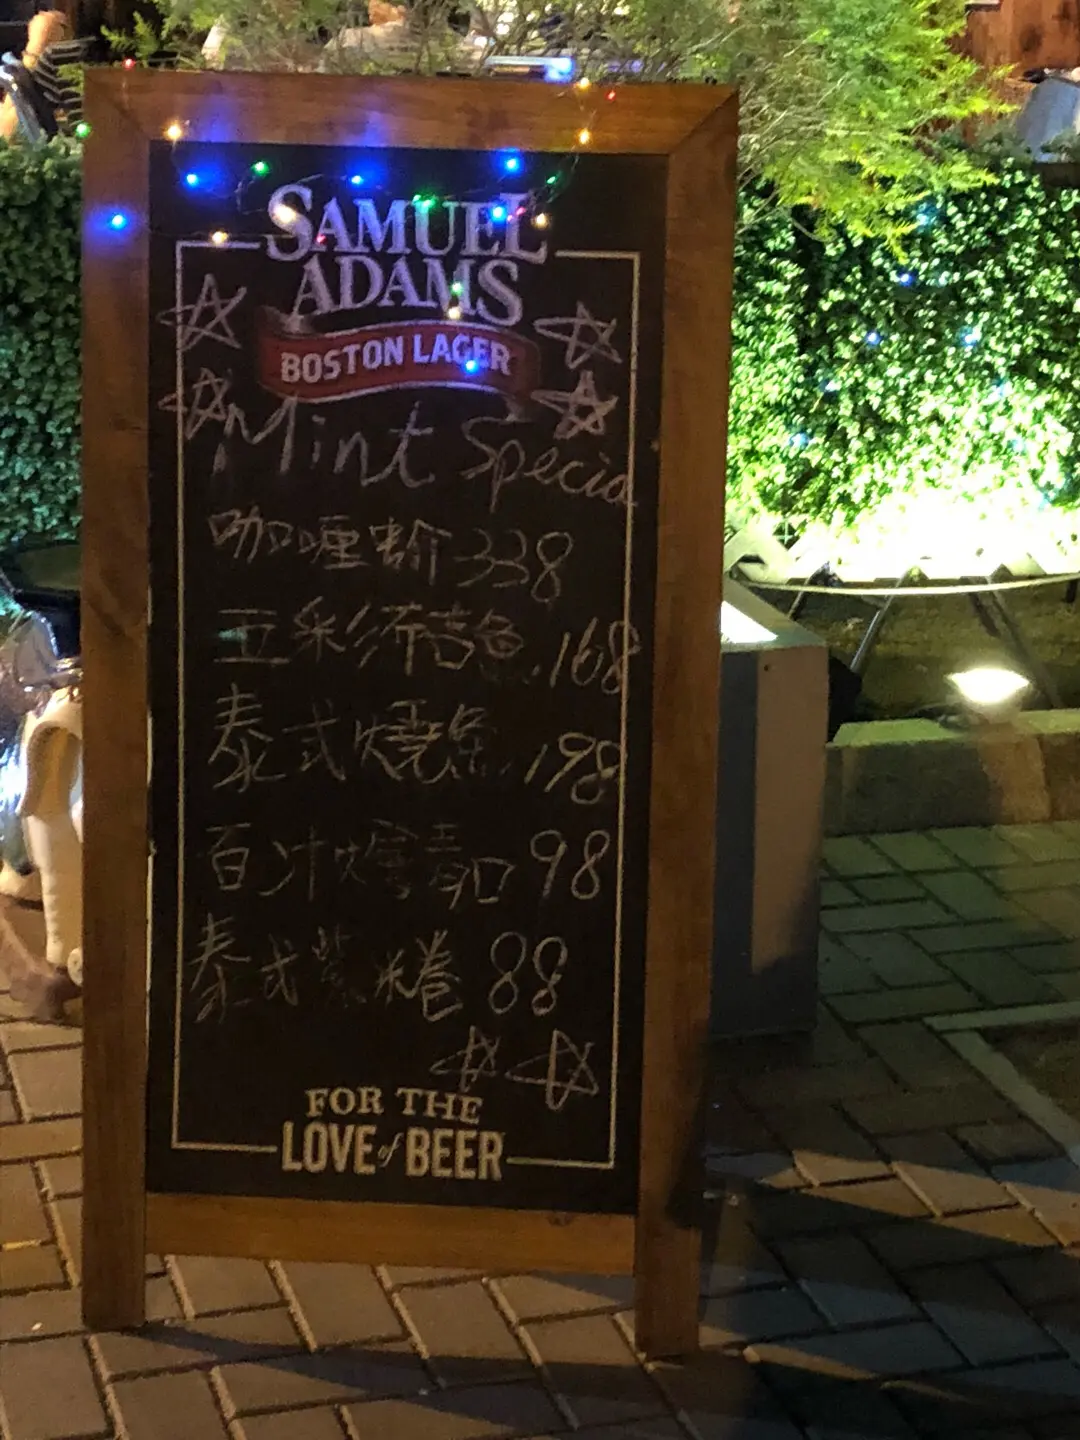 SAMUEL
ADAMS
BOSTON LAGER
Mint Special
咖喱 338
五彩 168
泰式燒 198
百汁 青口 98
泰式 88
FOR THE
LOVE of BEER